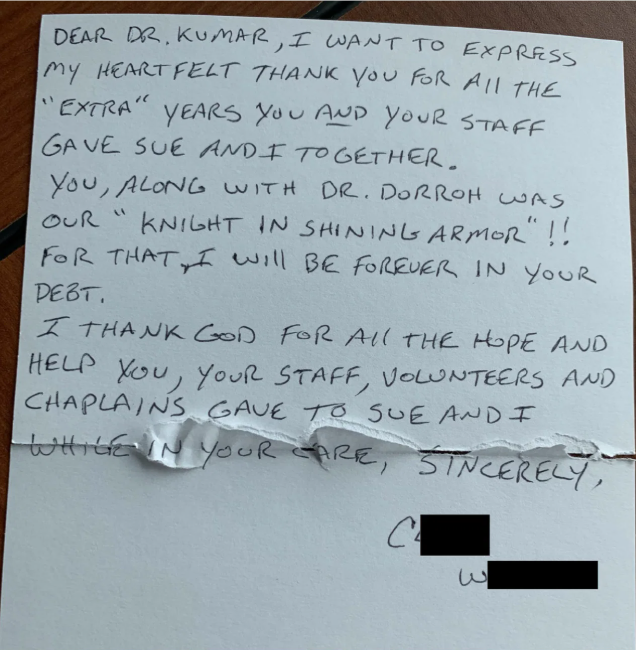 DEAR DR. KUMAR, I WANT TO EXPRESS
MY HEARTFELT THANK YOU FOR All THE
"EXTRA" YEARS YOU AND YOUR STAFF
GAVE SUE AND I TOGETHER.
YOU, ALONG WITH DR. DORROH WAS
OUR "KNIGHT IN SHINING ARMOR"!!
FOR THAT, I WIll BE FOREVER IN YOUR
DEBT.
I THANK GOD FOR All THE HOPE AND
HELP YOU, YOUR STAFF, VOLUNTEERS AND
CHAPLAINS GAVE TO SUE AND I
WHILE IN YOUR CARE, SINCERELY,
C
W